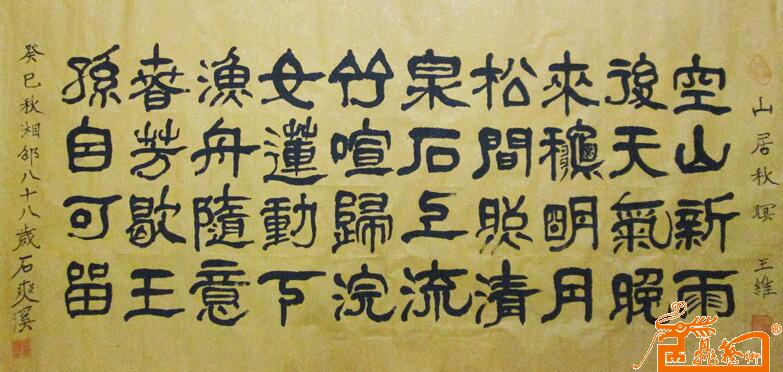 山居秋暝 王維
空山新雨
後天氣晚
來龝明月
松間照清
泉石上流
竹喧歸浣
女蓮動下
漁舟隨意
春芳歇王
孫自可留
癸巳秋湘邵八十八歲石爽溪